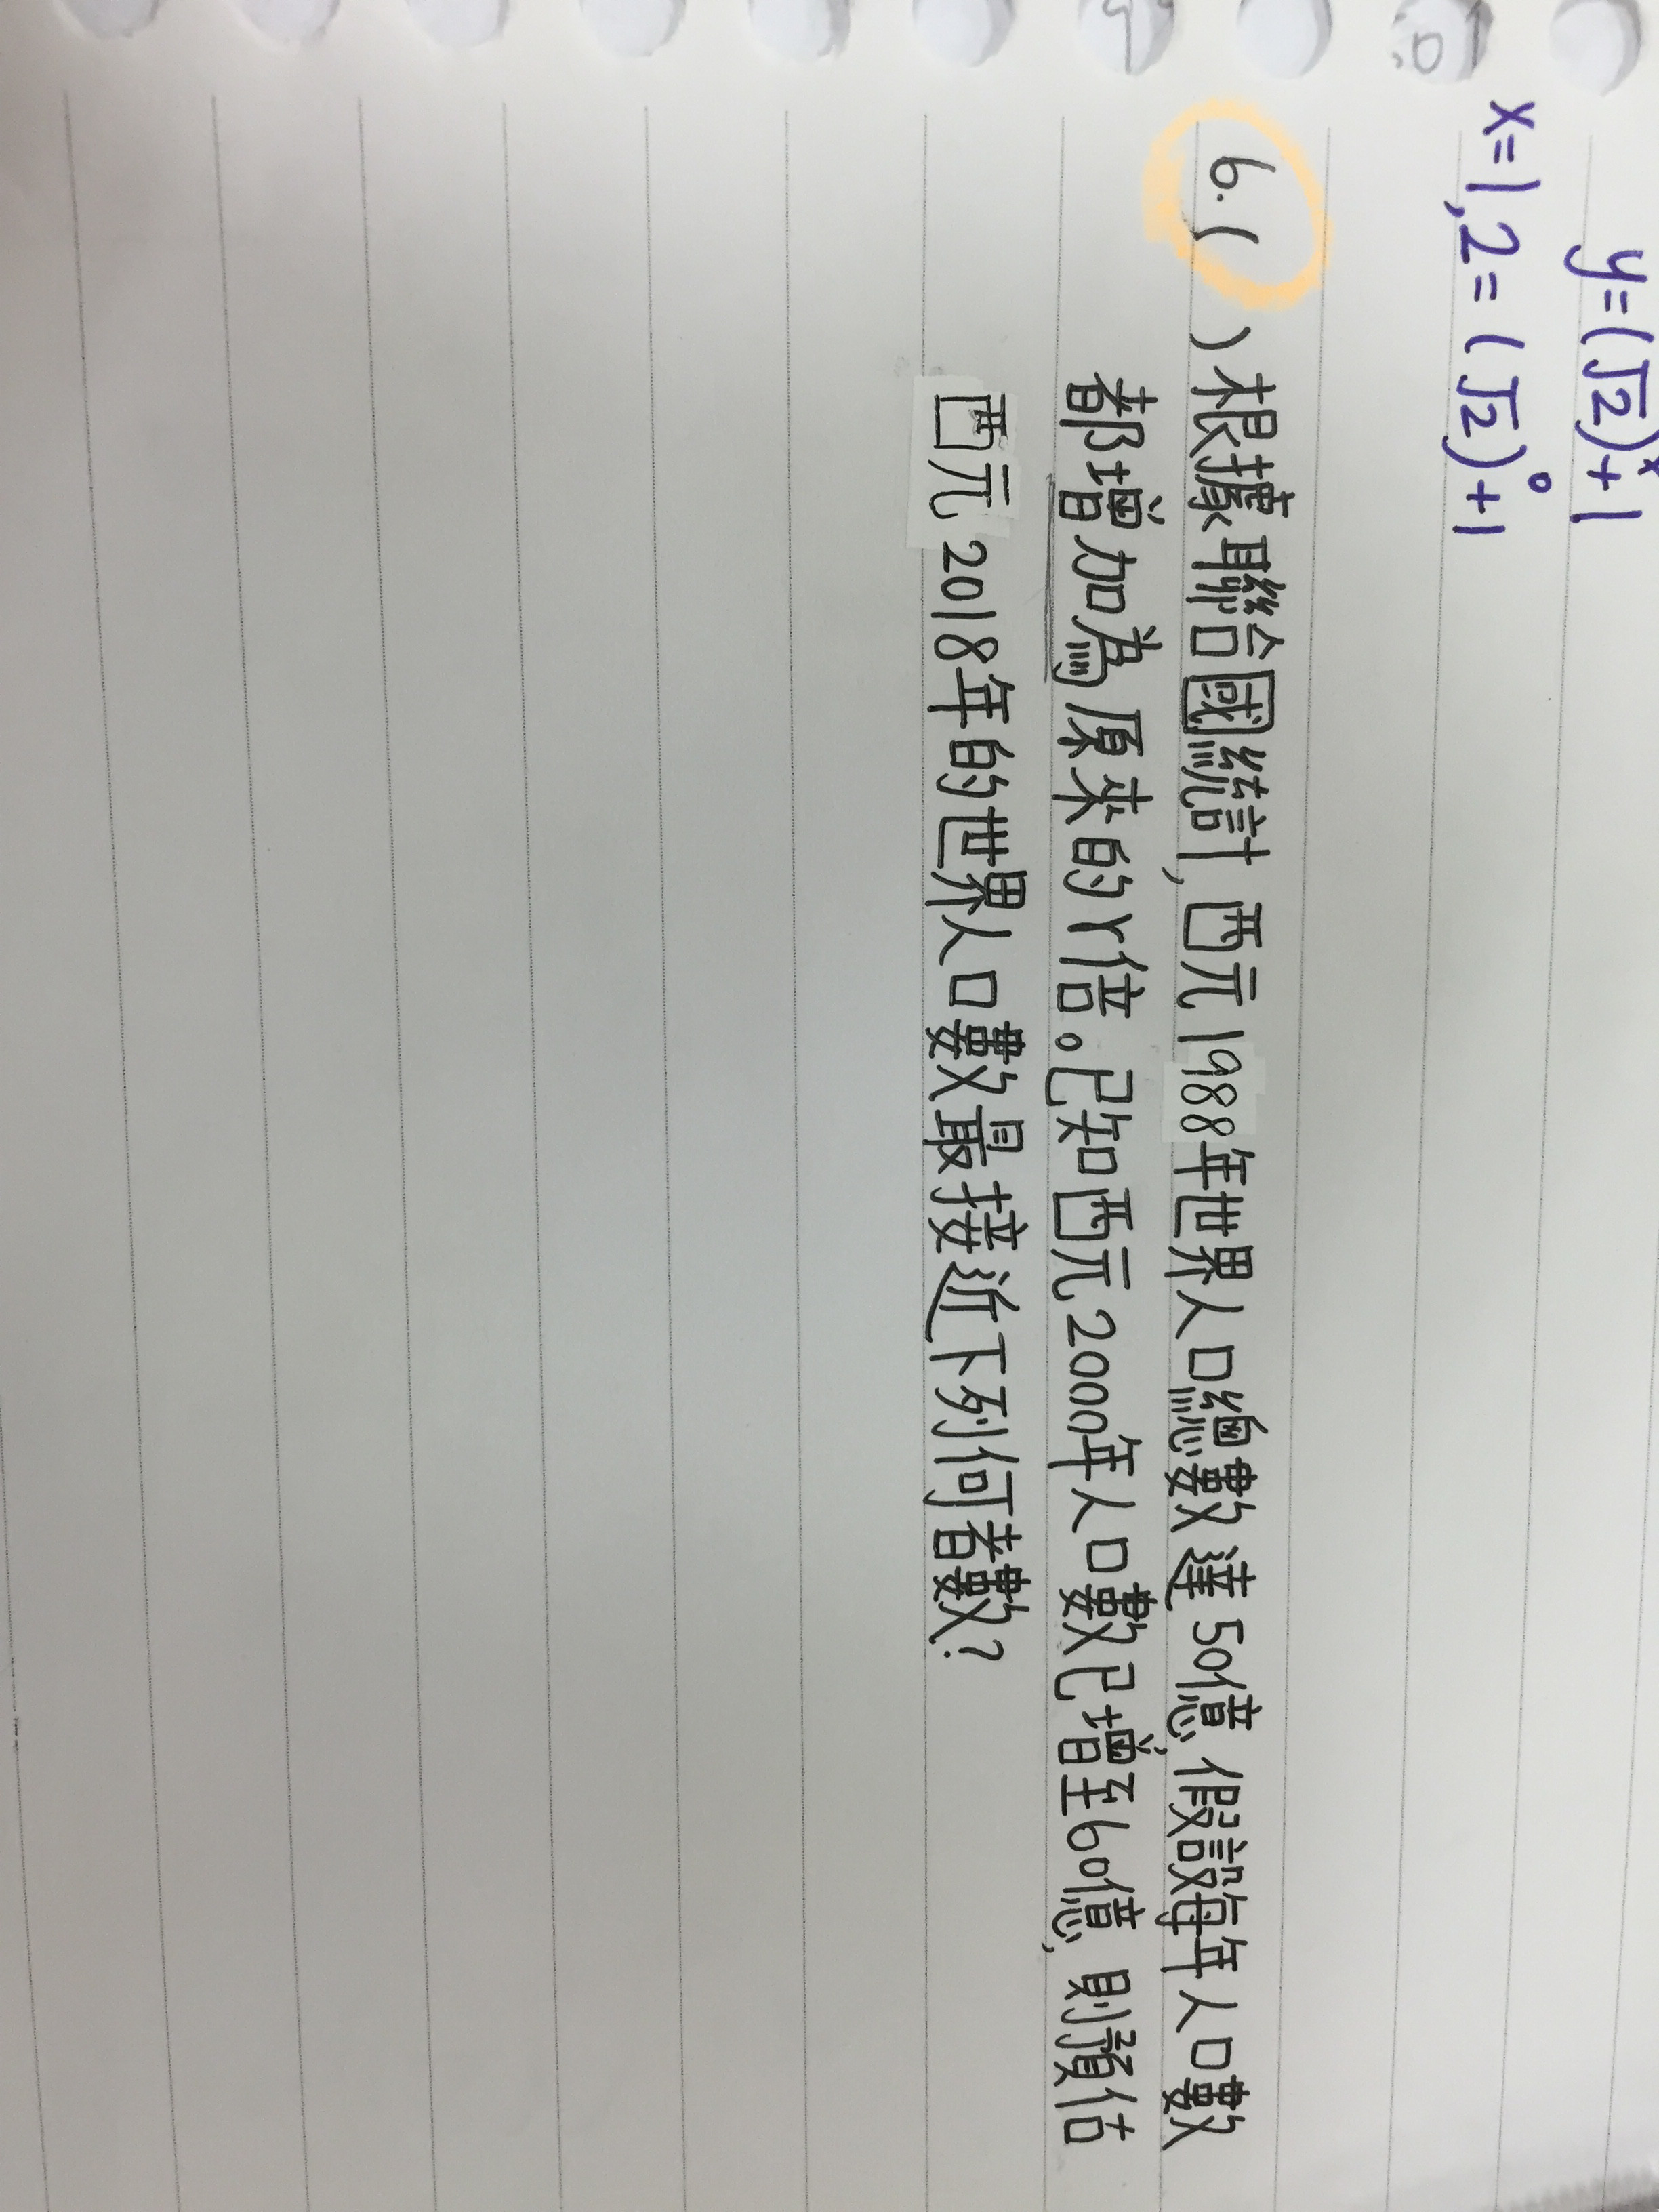 y=(√2)ˣ+1
x=1,2=(√2)⁰+1
6.( )根據聯合國統計,西元1988年世界人口總數達50億,假設每年人口數
都增加為原來的r倍。已知西元2000年人口數已增至60億,則預估
西元2018年的世界人口數最接近下列何者數?